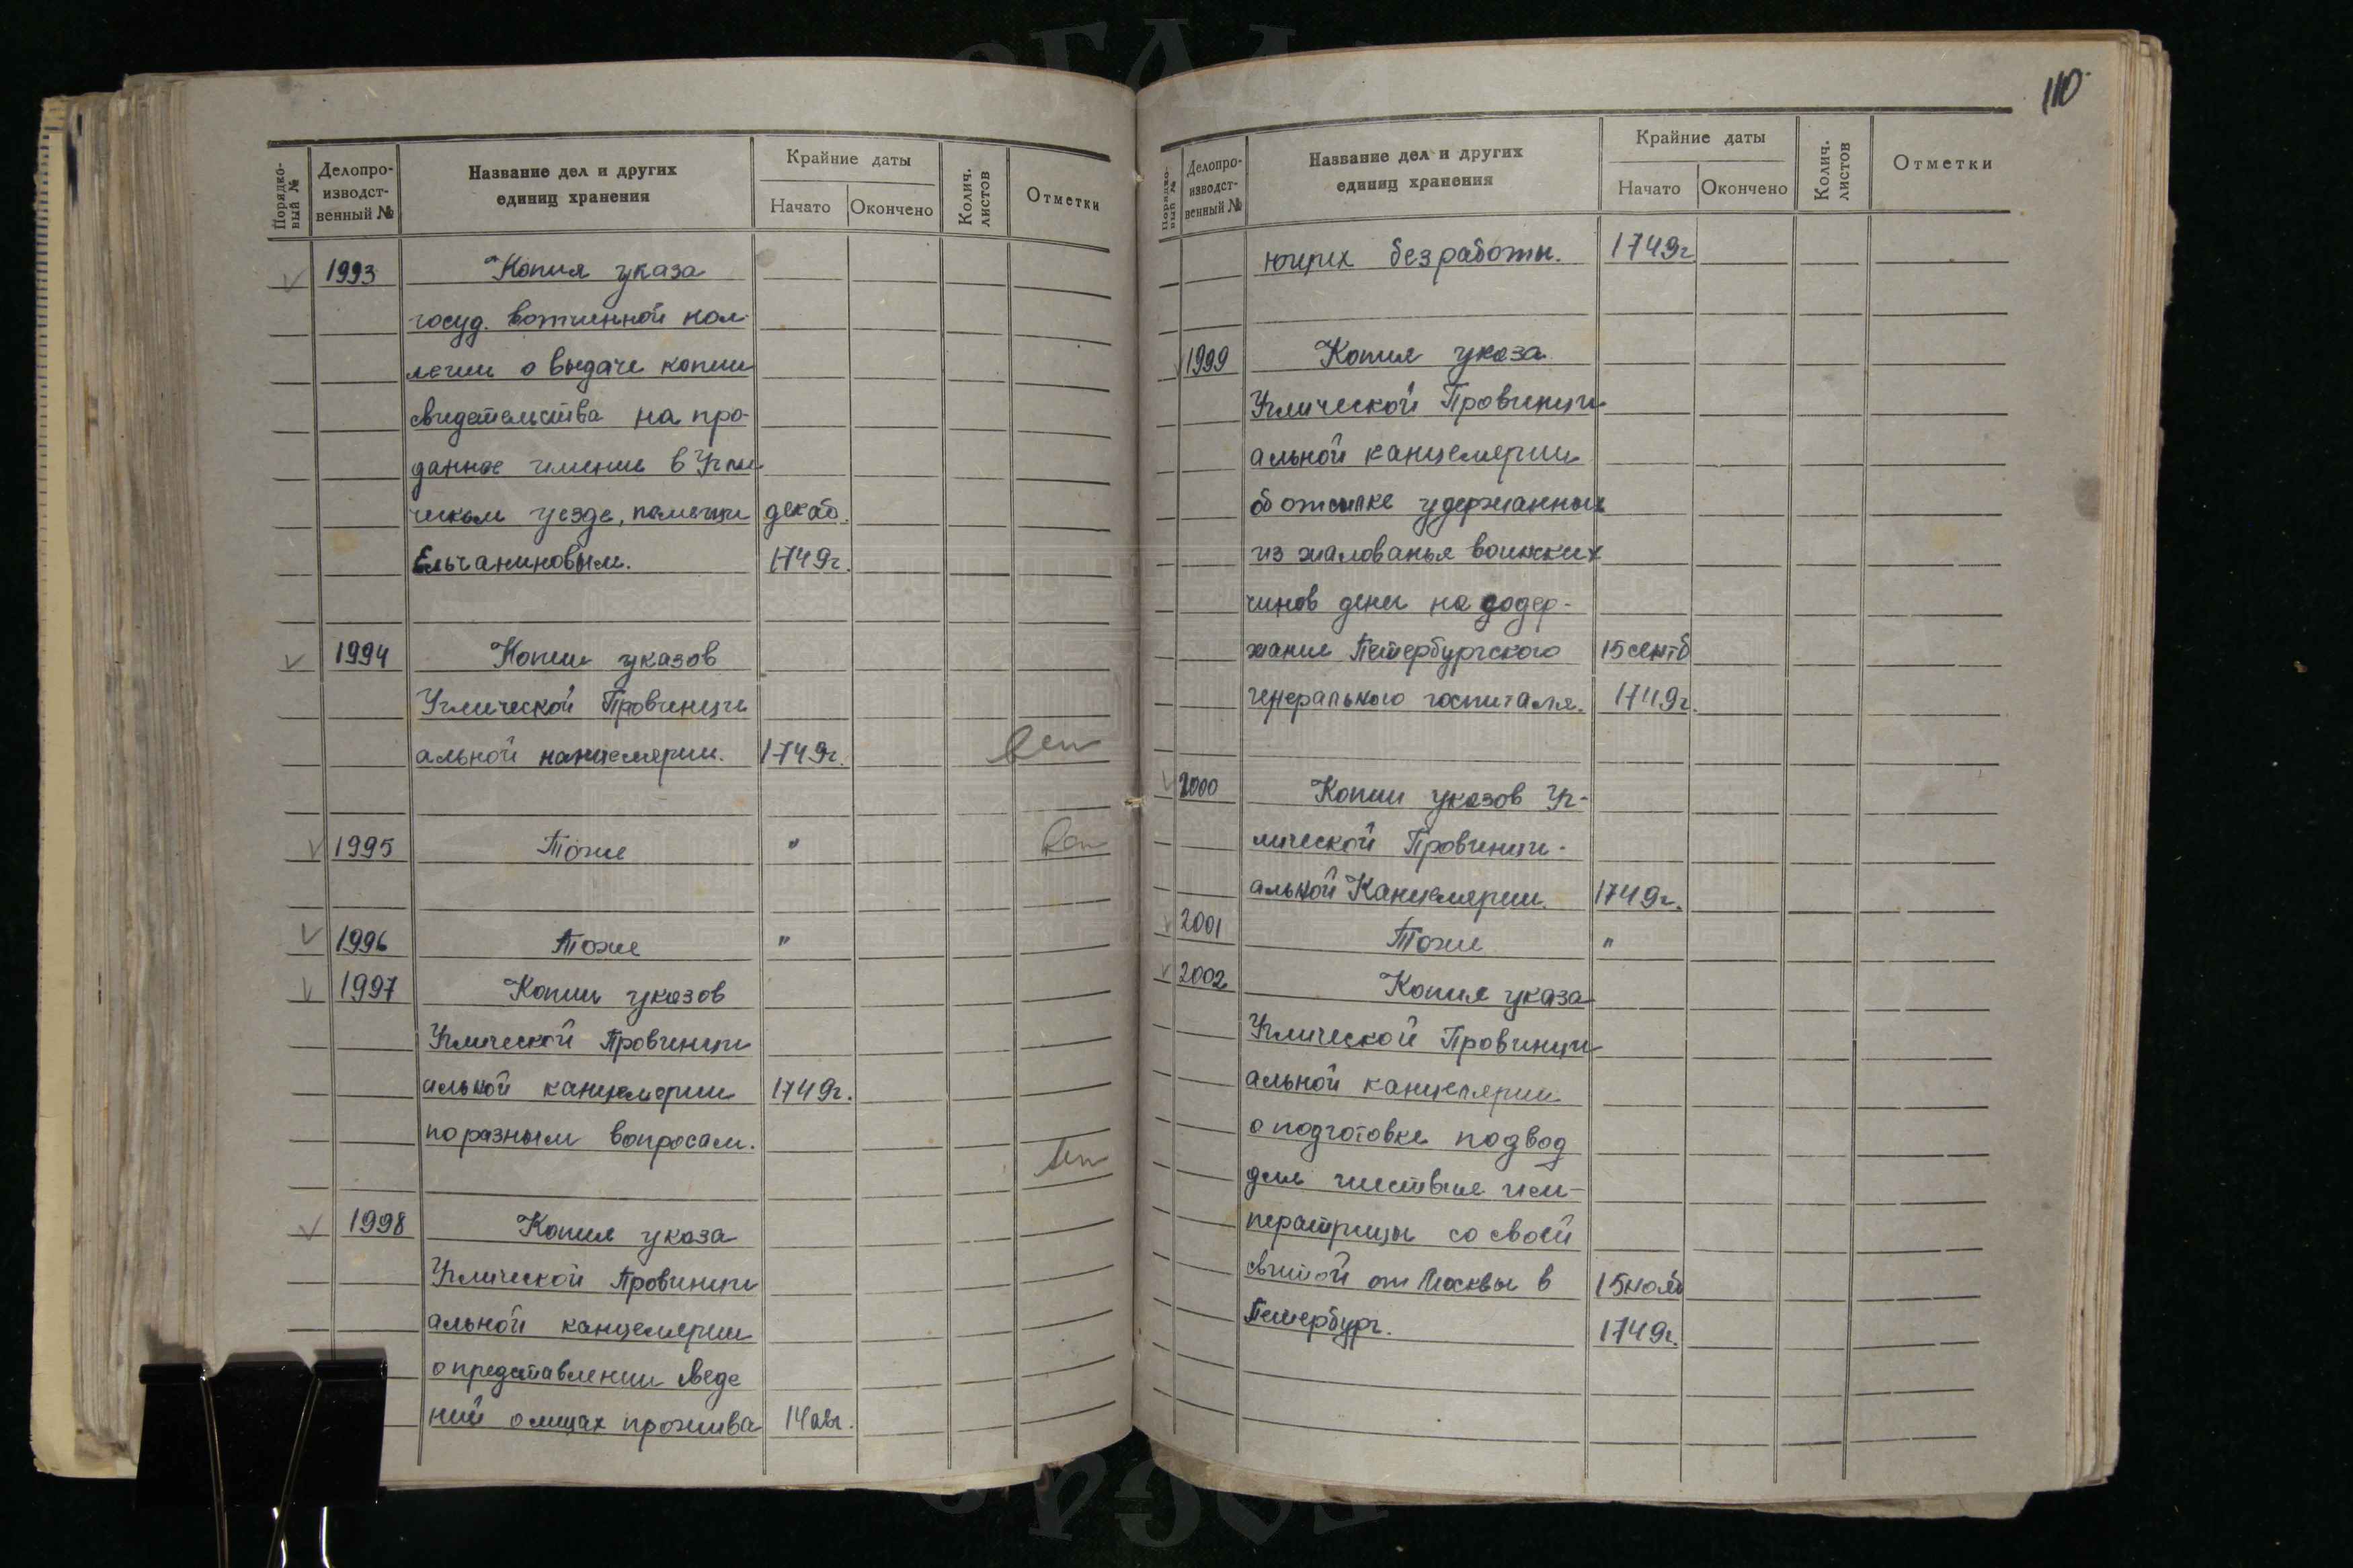 110
Порядковый №
Делопроизводственный №
Название дел и других единиц хранения
Крайние даты
Начато
Окончено
Колич. листов
Отметки
1993 Копия указа
госуд. вотчинной кол-
легии о выдаче копии
свидетельства на про-
данное имение в Угли
ческом уезде, помещи декаб.
Ельчаниновым. 1749г.
1994 Копии указов
Углической Провинци
альной канцелярии. 1749г.
1995 Тоже "
1996 Тоже "
1997 Копии указов
Углической Провинци
альной канцелярии 1749г.
по разным вопросам.
1998 Копия указа
Углической Провинци
альной канцелярии
о представлении сведе
ний о лицах прожива 14 авг.
Порядковый №
Делопроизводственный №
Название дел и других единиц хранения
Крайние даты
Начато
Окончено
Колич. листов
Отметки
ющих без работы. 1749г
1999 Копия указа
Углической Провинци
альной канцелярии
об отсылке удержанных
из жалованья воинских
чинов денег на содер-
жание Петербургского 15 сентб
генерального госпиталя. 1749г.
2000 Копии указов Уг-
лической Провинци-
альной Канцелярии. 1749г.
2001 Тоже "
2002 Копия указа
Углической Провинци
альной канцелярии
о подготовке подвод
для шествия им-
ператрицы со своей
свитой от Москвы в 15 нояб
Петербург. 1749г.